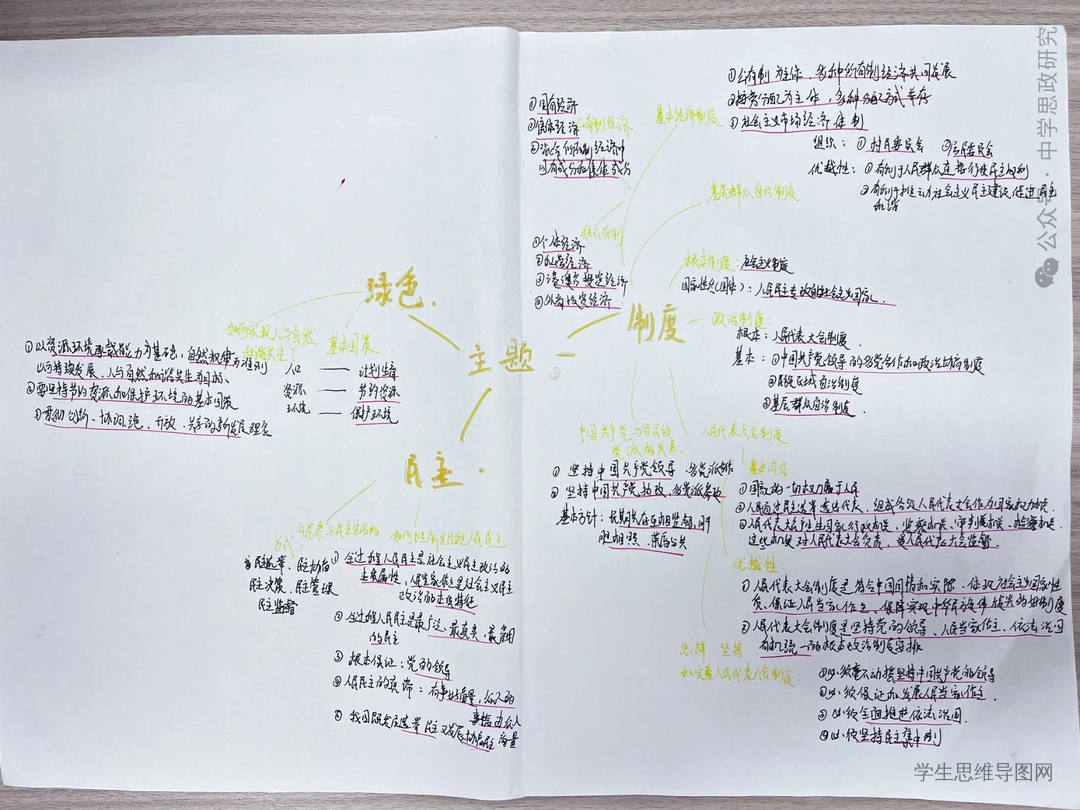 主题
绿色.
如何实现人与自然
和谐共生?
①以资源环境承载能力为基础，自然规律为准则
以可持续发展、人与自然和谐共生为目的、
②要坚持节约资源和保护环境的基本国策
③贯彻创新、协调、绿、开放、共享的新发展理念
基本国策
人口 —— 计划生育
资源 —— 节约资源
环境 —— 保护环境
民主.
公民参与民主生活的
方式
民主选举、民主协商
民主决策、民主管理
民主监督
①全过程人民民主是社会主义民主政治的
本质属性，人民当家作主是社会主义民主
政治的本质特征
②全过程人民民主是最广泛、最真实、最管用
的民主
③根本保证：党的领导
④人民民主的真谛：有事好商量，众人的
事情由众人商量
制度
基本经济制度
①公有制为主体，多种所有制经济共同发展
②按劳分配为主体，多种分配方式并存
③社会主义市场经济体制
公有制经济
①国有经济
②集体经济
③混合所有制经济中
国有成分和集体成分
①个体经济
②私营经济
③港澳台投资经济
④外商投资经济
基层群众自治制度
组织：①村民委员会 ②居民委员会
优越性：①有利于人民群众直接行使民主权利
②有利于推动社会主义民主建设，促进民主
和谐
根本制度：社会主义制度
国家性质(国体)：人民民主专政的社会主义国家.
政治制度：
根本：人民代表大会制度.
基本：①中国共产党领导的多党合作和政治协商制度
②民族区域自治制度
③基层群众自治制度.
中国共产党与各民主
党派的关系、
①坚持中国共产党领导、多党派合作
②坚持中国共产党执政、多党派参政
基本方针：长期共存、互相监督、肝
胆相照、荣辱与共
人民代表大会制度
基本内容
①国家的一切权力属于人民
②人民通过民主选举选出代表，组成各级人民代表大会作为国家权力机关.
③人民代表大会产生国家行政机关，监察机关、审判机关、检察机关.
这些机关对人民代表大会负责，受人民代表大会监督.
优越性：
①人民代表大会制度是符合中国国情和实际、体现社会主义国家性
质、保证人民当家作主、保障实现中华民族伟大复兴的好制度
②人民代表大会制度是坚持党的领导、人民当家作主、依法治国
有机统一的根本政治制度安排
怎样坚持
和完善人民代表大会制度：
①必须毫不动摇坚持中国共产党的领导
②必须保证和发展人民当家作主.
③必须全面推进依法治国.
④必须坚持民主集中制
公众号·中学思政研究
学生思维导图网